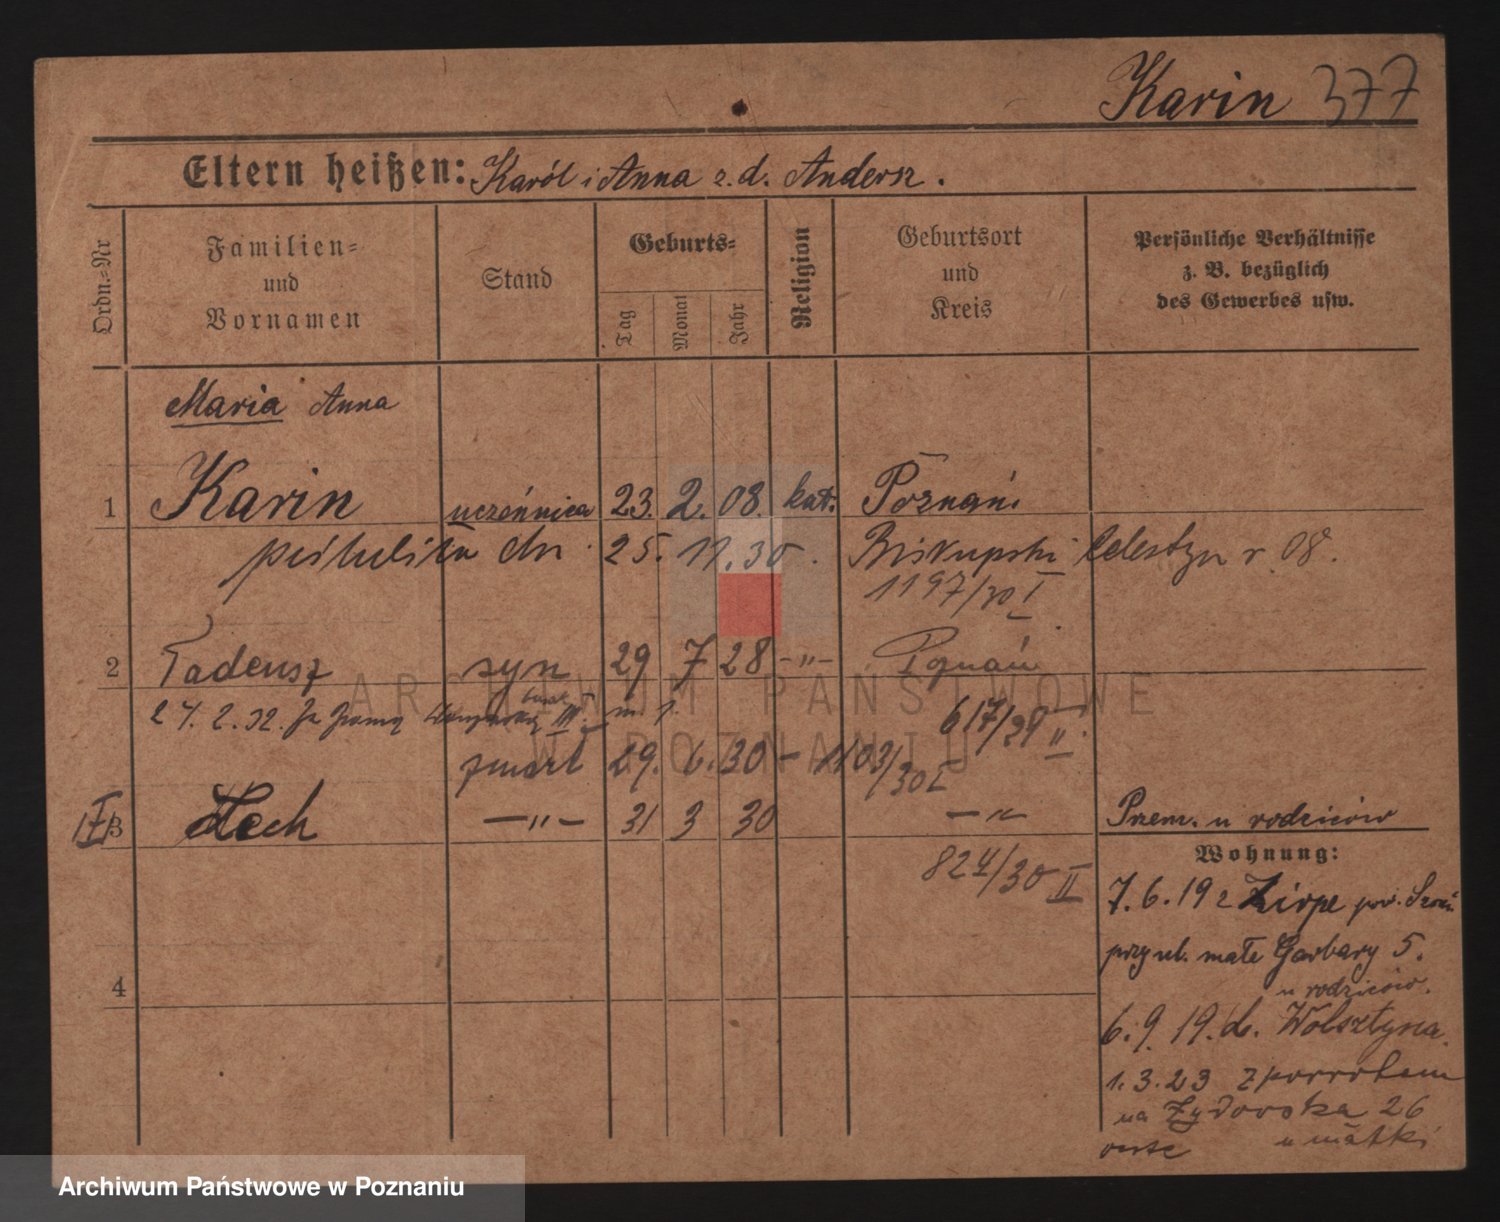 Karin 377
Eltern heißen: Karól i Anna z. d. Andersz.
Ordn.-Nr
Familien-
und
Vornamen
Stand
Geburts-
Tag
Monat
Jahr
Religion
Geburtsort
und
Kreis
Persönliche Verhältnisse
z. B. bezüglich
des Gewerbes usw.
Maria Anna
1 Karin uczennica 23. 2. 08. kat. Poznań.
dn. 25. 11. 30. Biskupski Celestyn r. 08.
1197/30 I
2 Tadeusz syn 29 7 28 -"- Poznań
27. 2. 32. III m. 1
617/28 II
zmarł 29. 6. 30 - 1103/30 I
3 Lech -"- 31 3 30 -"-
824/30 II
4
Przem. u rodziców
Wohnung:
7. 6. 19 z Zirpe pow.
przy ul. małe Garbary 5.
u rodziców.
6. 9. 19. d. Wolsztyna.
1. 3. 23 z powrotem
na Żydowska 26
u matki
ARCHIWUM PAŃSTWOWE
W POZNANIU
Archiwum Państwowe w Poznaniu